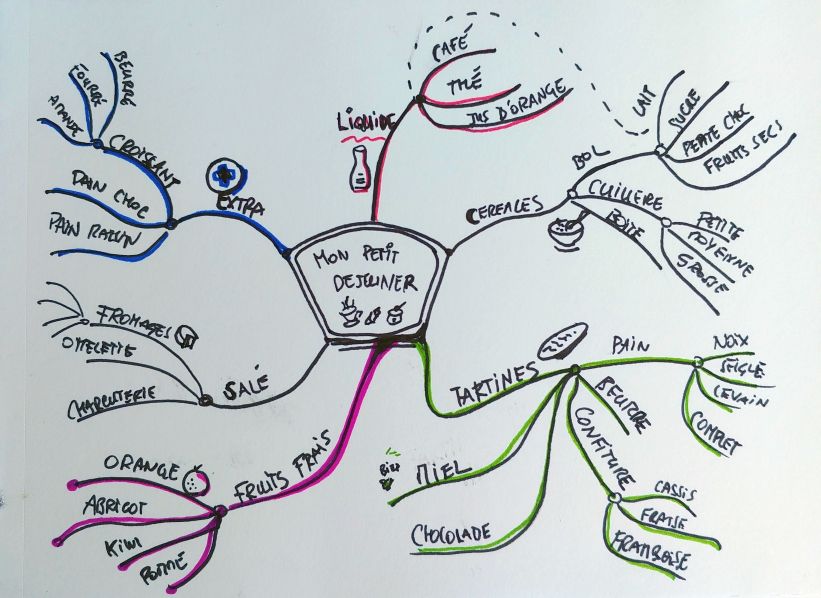 MON PETIT
DEJEUNER
LIQUIDE
CAFÉ
THÉ
JUS D'ORANGE
CEREALES
BOL
LAIT
SUCRE
PEPITE CHOC
FRUITS SECS
CUILLERE
PETITE
MOYENNE
GROSSE
BOITE
TARTINES
PAIN
NOIX
SEIGLE
LEVAIN
COMPLET
BEURRE
CONFITURE
CASSIS
FRAISE
FRAMBOISE
MIEL
CHOCOLADE
FRUITS FRAIS
ORANGE
ABRICOT
KIWI
POMME
SALÉ
FROMAGES
OMELETTE
CHARCUTERIE
EXTRA
CROISSANT
BEURRE
FOURRÉ
AMANDE
PAIN CHOC
PAIN RAISIN